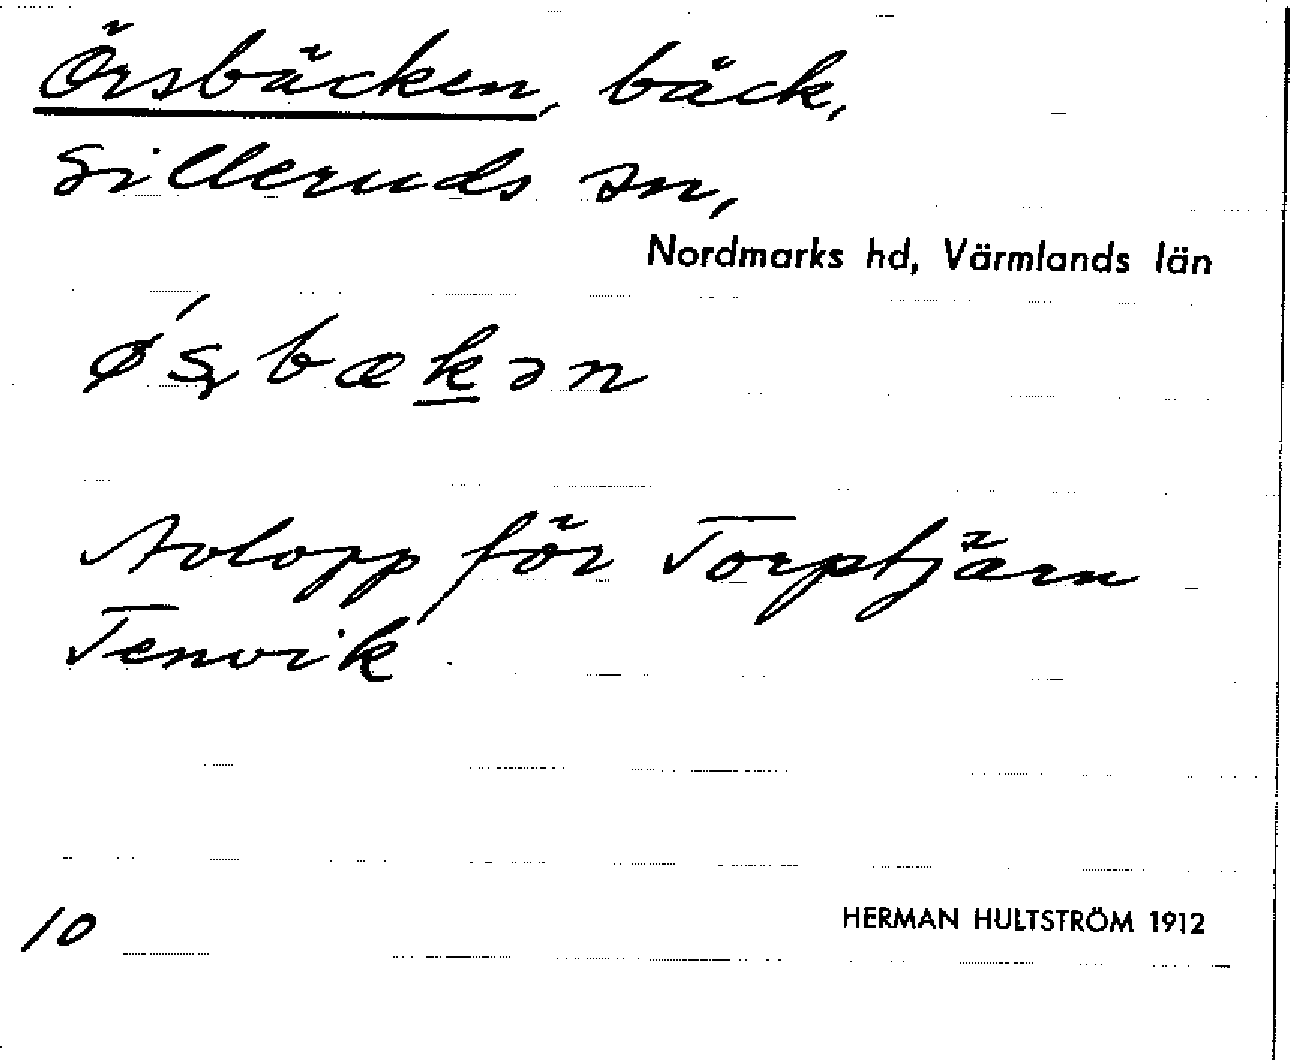 Örsbäcken, bäck,
Silleruds sn,
Nordmarks hd, Värmlands län
ǿʂbækən
Avlopp för Torptjärn
Tenvik
10
HERMAN HULTSTRÖM 1912